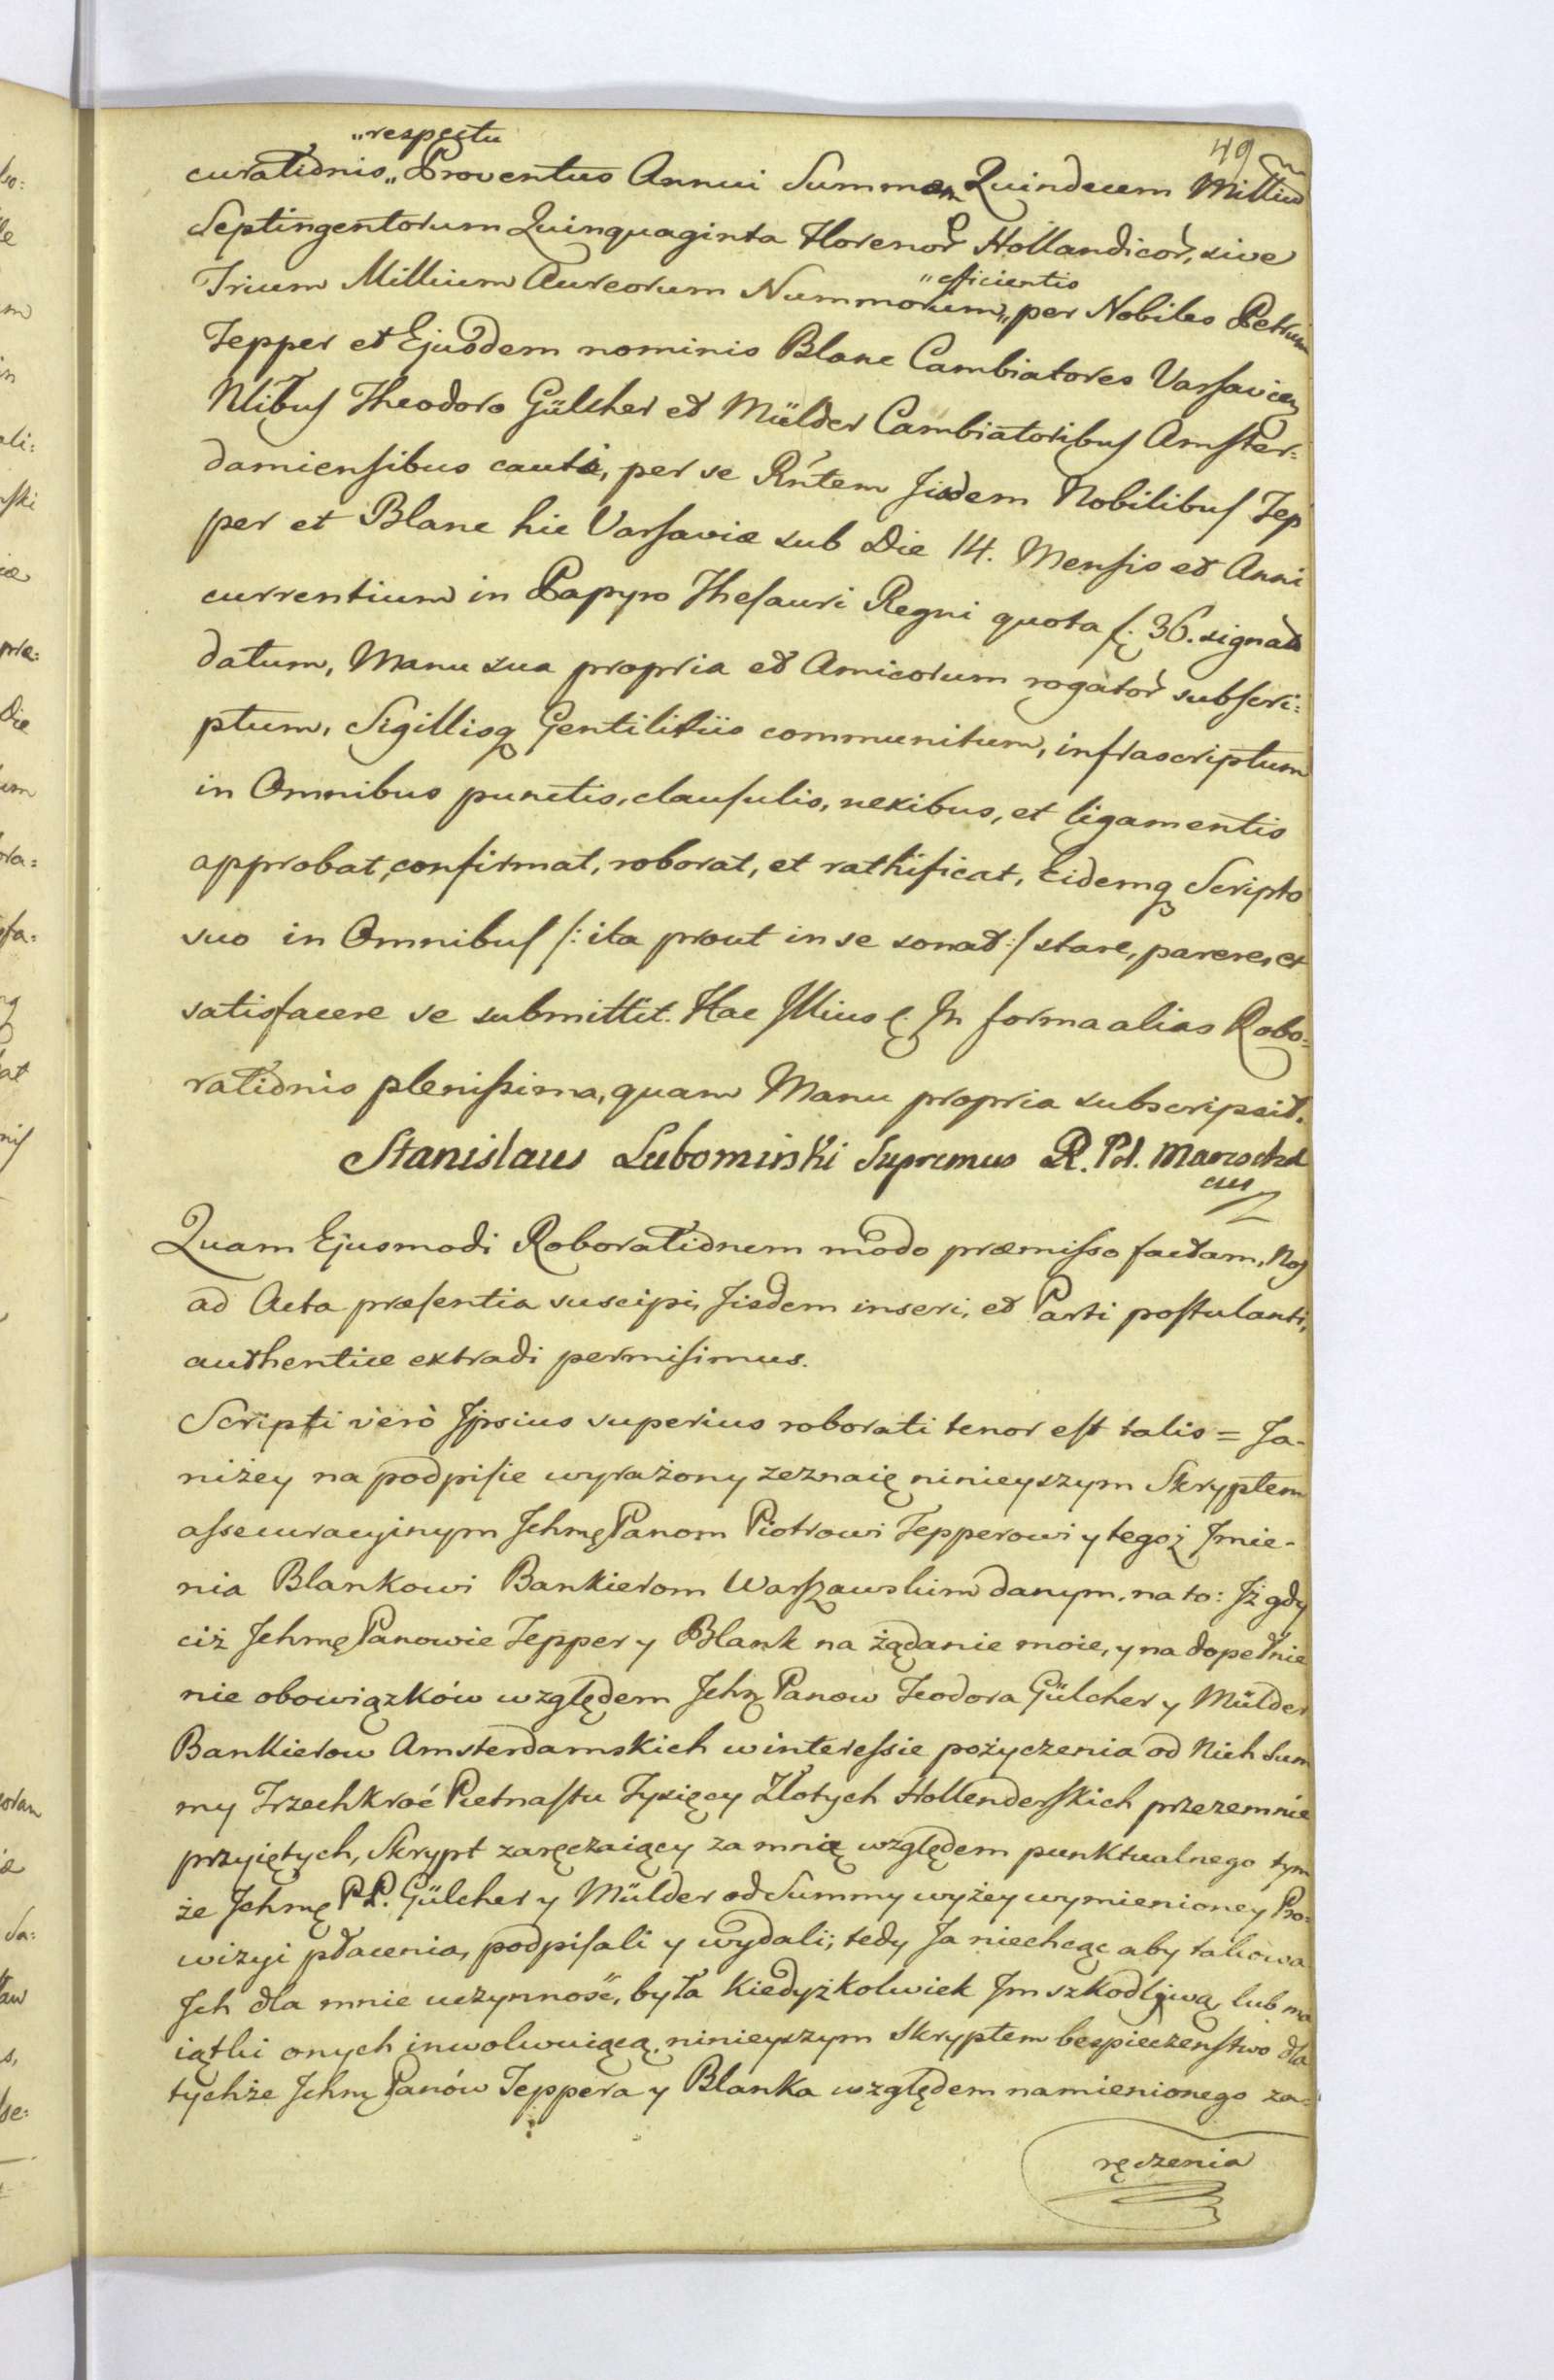 49
„respectu
curationis„ Proventus Annui Summam Quindecem Milliū
Septingentorum Quinquaginta Florenor Hollandicor, sive
„efficientis
Trium Millium Aureorum Nummorum„ per Nobiles Petrum
Tepper et Ejusdem nominis Blanc Cambiatores Varsavien
Nlibus Theodoro Gülcher et Mülder Cambiatoribus Amster:
damiensibus cauti, per se Rńtem Iisdem Nobilibus Tep
per et Blanc hic Varsaviæ sub Die 14. Mensis et Anni
currentium in Papyro Thesauri Regni quota f. 36. signato
datum, Manu sua propria et Amicorum rogator subscri:
ptum, Sigillisq Gentilitiis communitum, infrascriptum
in Omnibus punctis, clausulis, nexibus, et ligamentis
approbat, confirmat, roborat, et rathificat, Eidemq Scripto
suo in Omnibus /: ita prout in se sonat :/ stare, parere, et
satisfacere se submittit. Hac Illius In forma alias Robo:
rationis plenissima, quam Manu propria subscripsit.
Stanislaus Lubomirski Supremus R. Pol. Marschal
cus
Quam Ejusmodi Roborationem modo præmisso factam, Nos
ad Acta præsentia suscipi, Iisdem inseri, et Parti postulanti,
authentice extradi permisimus.
Scripti verò Ipsius superius roborati tenor est talis = Ja-
niżey na podpisie wyrażony zeznaię ninieyszym Skryptem
assecuracyinym Ichmę Panom Piotrowi Tepperowi y tegoż Jmie-
nia Blankowi Bankierom Warszawskim danym, na to: Jż gdy
ciż Ichmę Panowie Tepper y Blank na żądanie moie, y na dopełnie
nie obowiązków względem Ichmę Panow Teodora Gülcher y Mülder
Bankierow Amsterdamskich w interessie pożyczenia od Nich Sum
my Trzechkroć Pietnastu Tysięcy Złotych Hollenderskich przezemnie
przyiętych, Skrypt zaręczaiący za mnie względem punktualnego tym
że Ichmę PP. Gülcher y Mülder od Summy wyżey wymienioney Pro:
wizyi płacenia, podpisali y wydali; tedy Ja niechcąc aby takowa
Ich dla mnie uczynność, była kiedyżkolwiek Jm szkodliwą, lub ma
iątki onych inwolwuiącą, ninieyszym Skryptem bespieczenstwo dla
tychże Ichmę Panów Teppera y Blanka względem namienionego za:
ręczenia